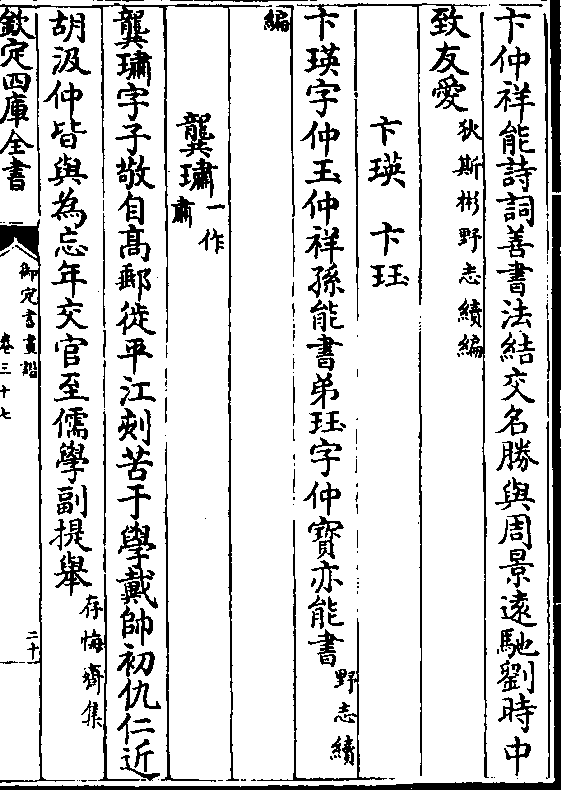 卞仲祥能詩詞善書法結交名勝與周景遠馳劉時中
致友愛狄斯彬野志續編
卞瑛 卞珏
卞瑛字仲玉仲祥孫能書弟珏字仲寶亦能書野志續
編
龔璛一作肅
龔璛字子敬自高郵徙平江刻苦于學戴帥初仇仁近
胡汲仲皆與為忘年交官至儒學副提舉存悔齋集
欽定四庫全書
御定書畫譜
卷三十七
二十